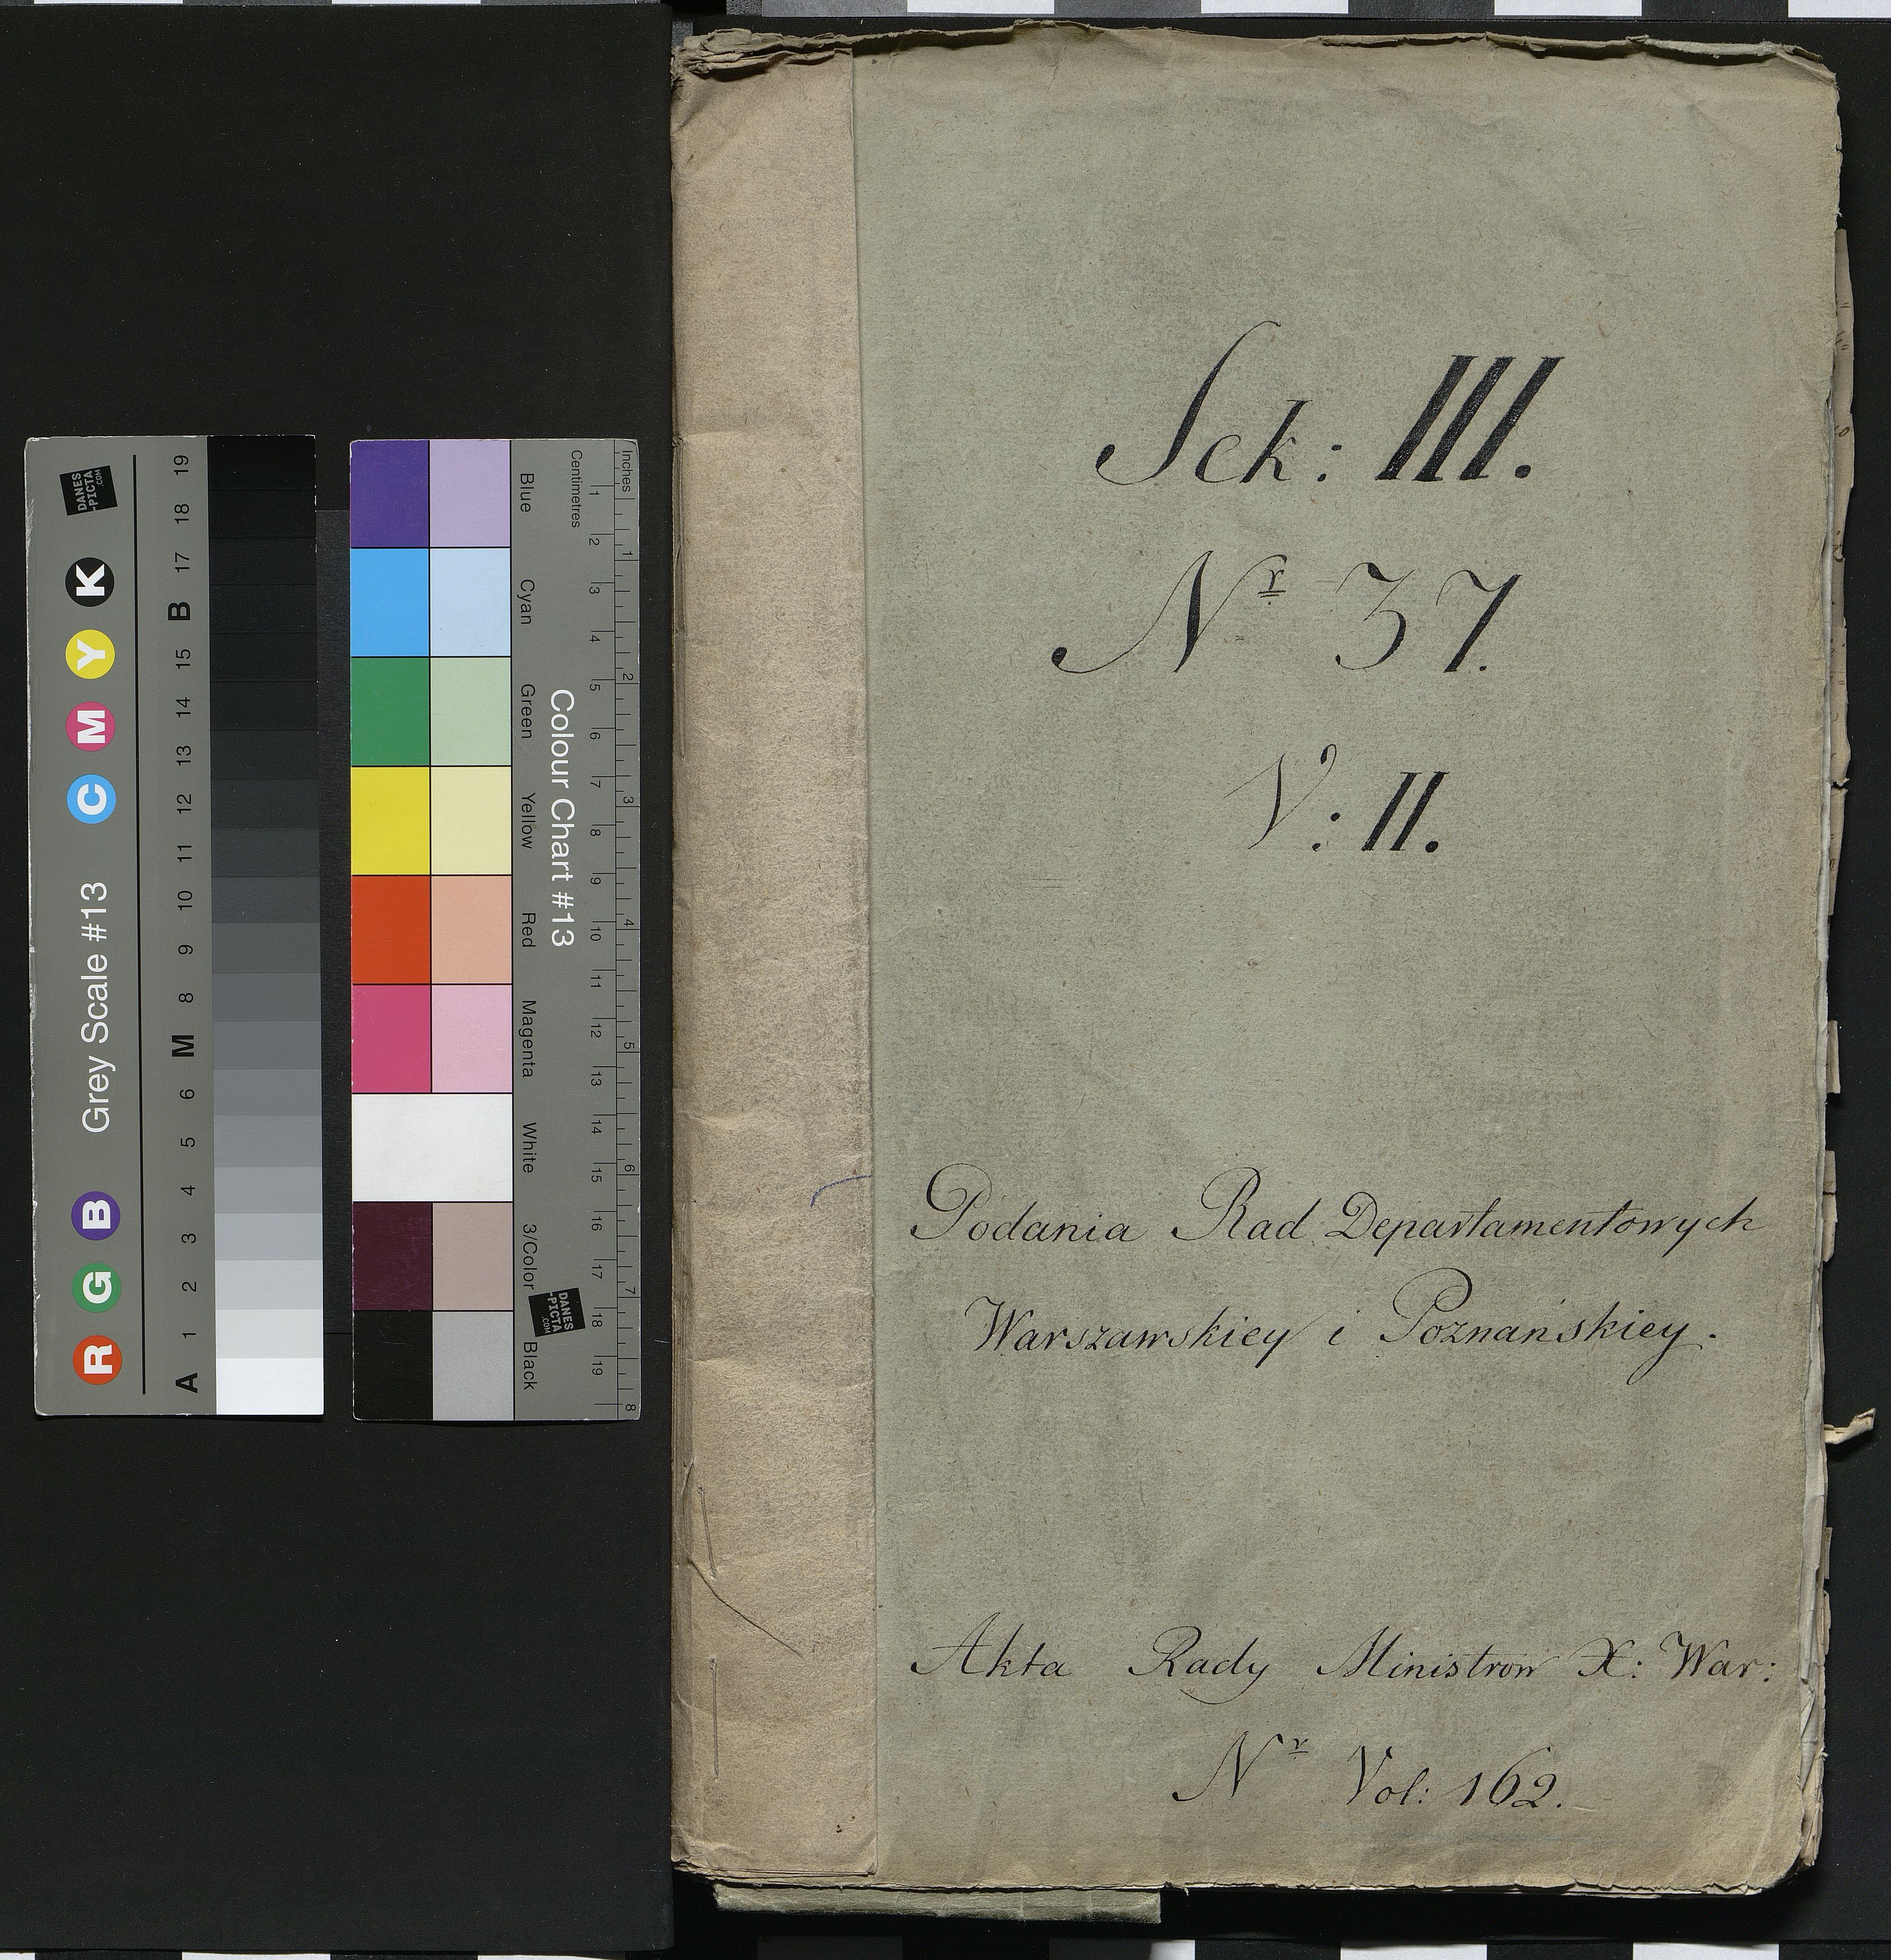 Sek: III.
Nr 37.
V: II.
Podania Rad Departamentowych
Warszawskiey i Poznańskiey.
Akta Rady Ministrow X: War:
Nr Vol: 162.
Grey Scale #13
R G B C M Y K
A 1 2 3 4 5 6 M 8 9 10 11 12 13 14 15 B 17 18 19
DANES
-PICTA
.COM
Colour Chart #13
Blue Cyan Green Yellow Red Magenta White 3/Color Black
Centimetres 1 2 3 4 5 6 7 8 9 10 11 12 13 14 15 16 17 18 19
Inches 1 2 3 4 5 6 7 8
DANES
-PICTA
.COM